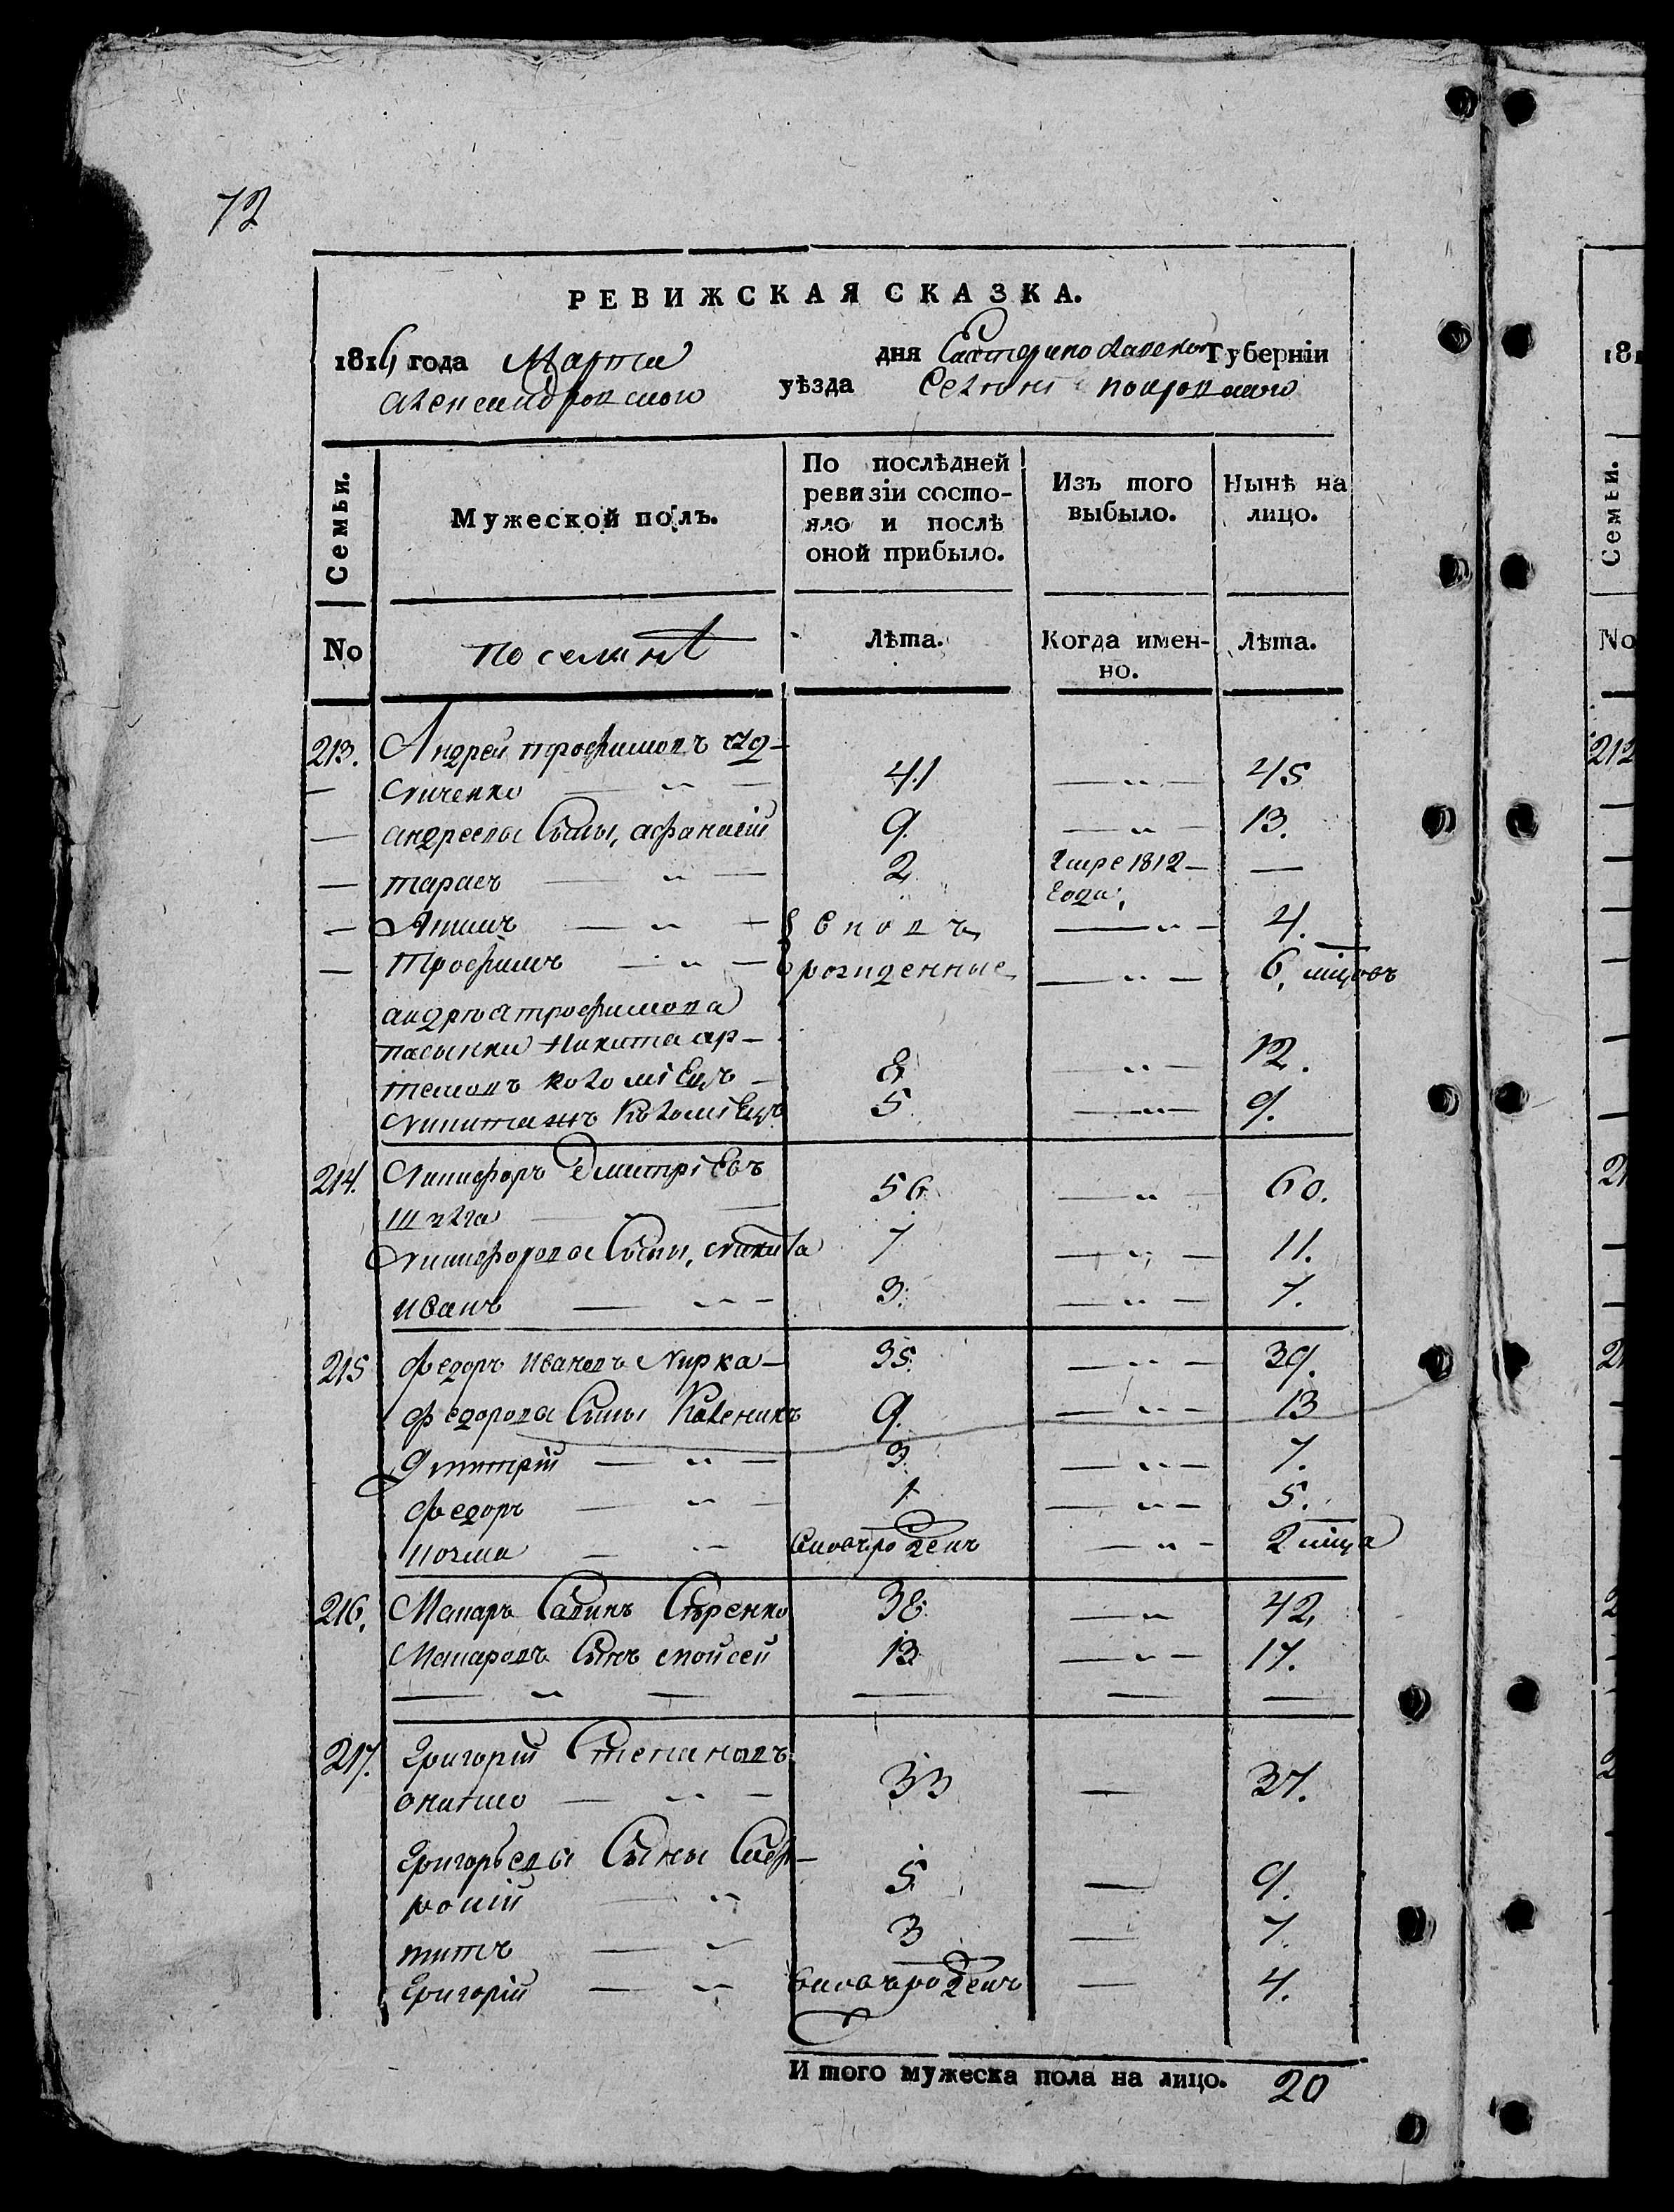 72
РЕВИЖСКАЯ СКАЗКА.
1816 года Марта дня Екатеринославской Губерніи
александровского уѣзда Селенія покровского
Семьи.
Мужеской полъ.
По послѣдней ревизіи состо-
яло и послѣ оной прибыло.
Изъ того выбыло.
Нынѣ на лицо.
No
поселянѣ
Лѣта.
Когда имен-
но.
Лѣта.
213. Андрей трофимовъ
41 45
андреевы Сыны, афанасій 9 13.
тарасъ 2 умре 1812 года —
Якимъ вновь 4.
трофимъ рожденные 6. мцовъ
андрѣя трофимова
пасынки Никита ар-
темовъ коломіецъ 8 12.
Никита жъ Коломіецъ 5 9.
214. Никифоръ Дмитріевъ
Шулга 56 60.
Никифорова Сыны, Никита 7 11.
иванъ 3. 7.
215 федоръ ивановъ Чирка 35 39.
федорова Сыны Каленикъ 9. 13
Дмитрій 3 7.
федоръ 1 5.
козма вновь рожденъ 2 мца
216. Макаръ Савинъ Сѣренко 38 42.
Макаровъ Сынъ мойсей 13 17.
217. Григорій Степановъ
33 37.
Григорьевы Сыны
5 9.
титъ 3 7.
Григорій вновь рожденъ 4.
И того мужеска пола на лицо. 20